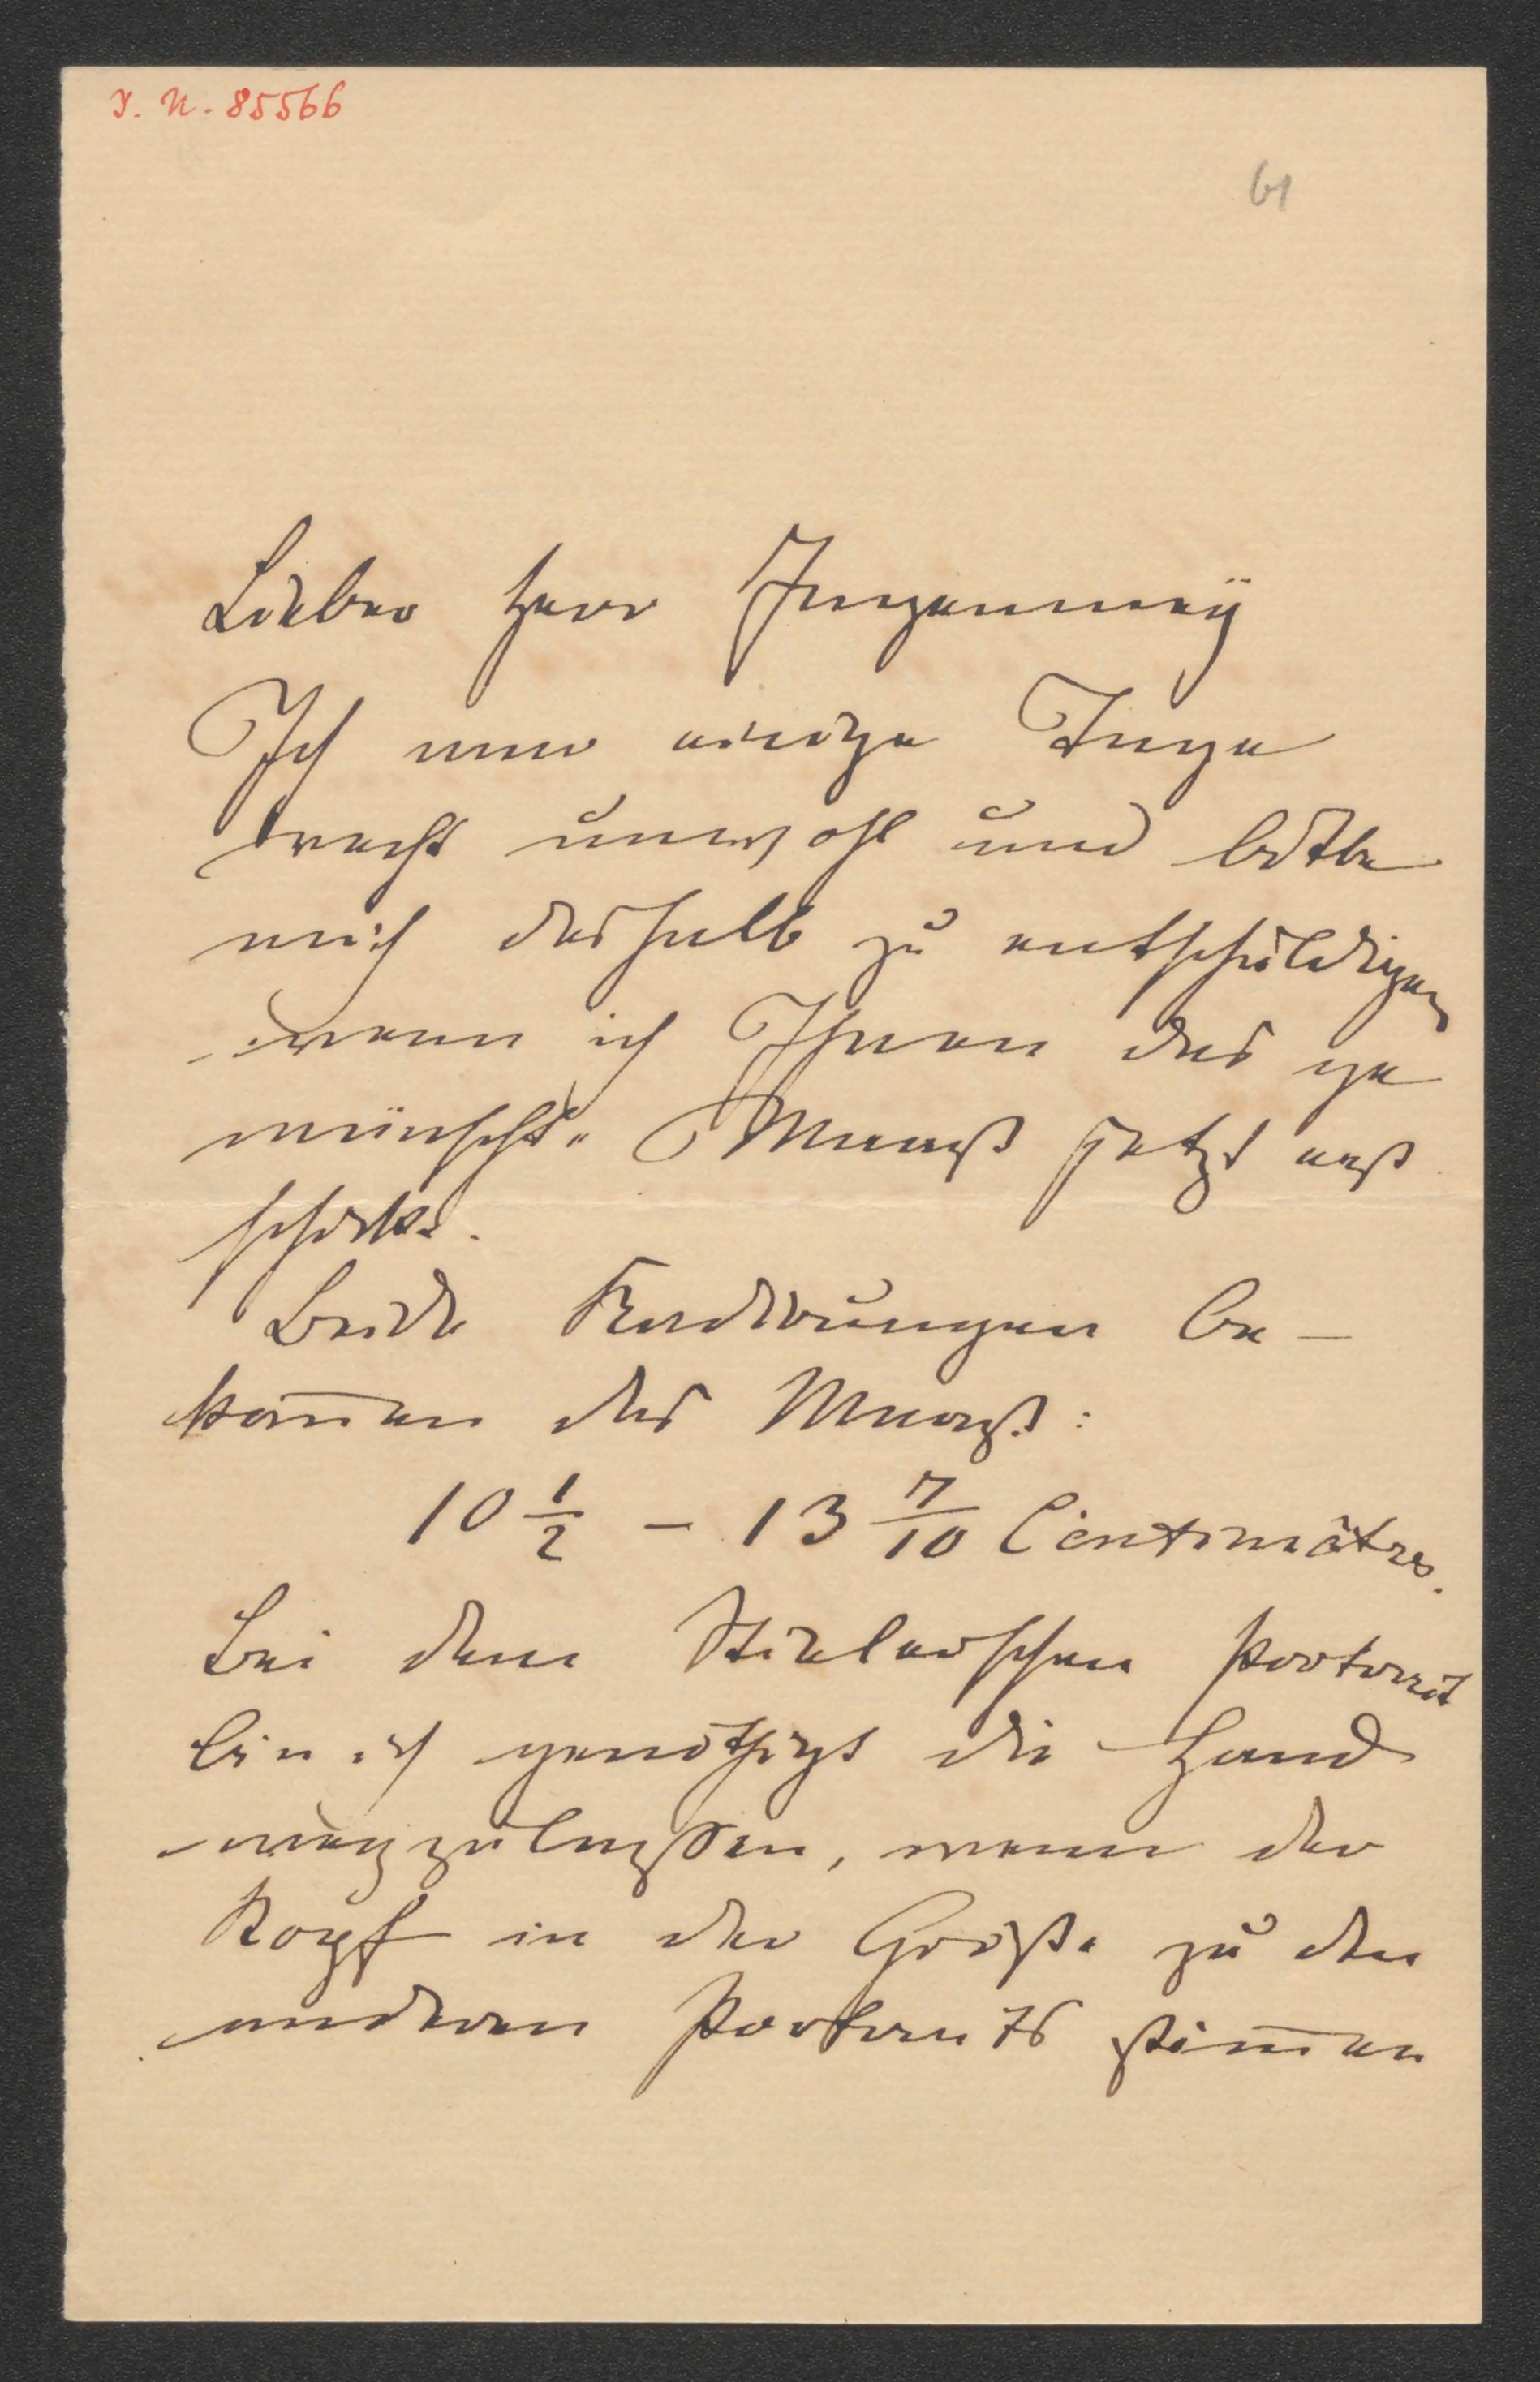 I. N. 85566
61
Lieber Herr Ingenmey
Ich war einige Tage
recht unwohl und bitte
mich deshalb zu entschuldigen
wenn ich Ihnen das ge
wünschte Maaß jetzt erst
schicke.
Beide Radirungen be-
kom̄en das Maaß:
10 1/2 – 13 7/10 Centimètres.
Bei dem Portrait
bin ich genöthigt die Hand
wegzulaßen, wenn der
Kopf in der Größe zu den
anderen Portraits stim̄en